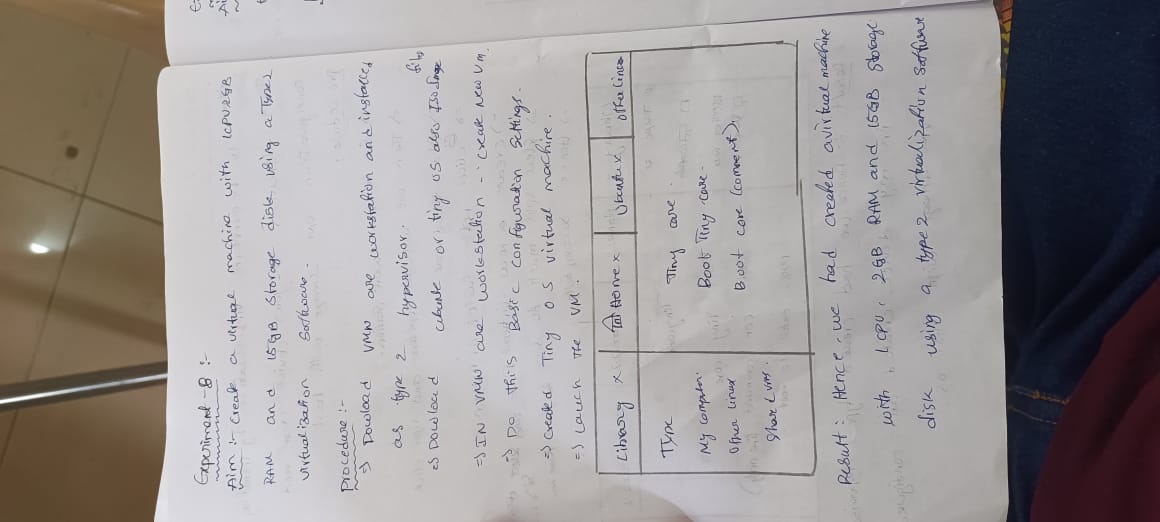 Experiment-8 :-
Aim :- Create a virtual machine with 1CPU 2GB
RAM and 15GB Storage disk using a Type2
virtualization Software.
Procedure :-
=> Dowload VMW are workstation and installed
as type 2 hypervisor.
=> Dowload ubunte or tiny OS also ISO Image files
=> IN VMW are workestation - create new VM.
=> Do this Basic configuration settings.
=> created Tiny OS virtual machine.
=> Lauch the VM.
Library x Home x Ubuntu x other linux
Type Tiny core.
My computer. Boot Tiny core-
Other Linux Boot core (comment).
Share L VMs.
Result: Hence, we had created a virtual machine
with 1 CPU. 2 GB RAM and 15GB Storage
disk using a type 2 virtualization Software